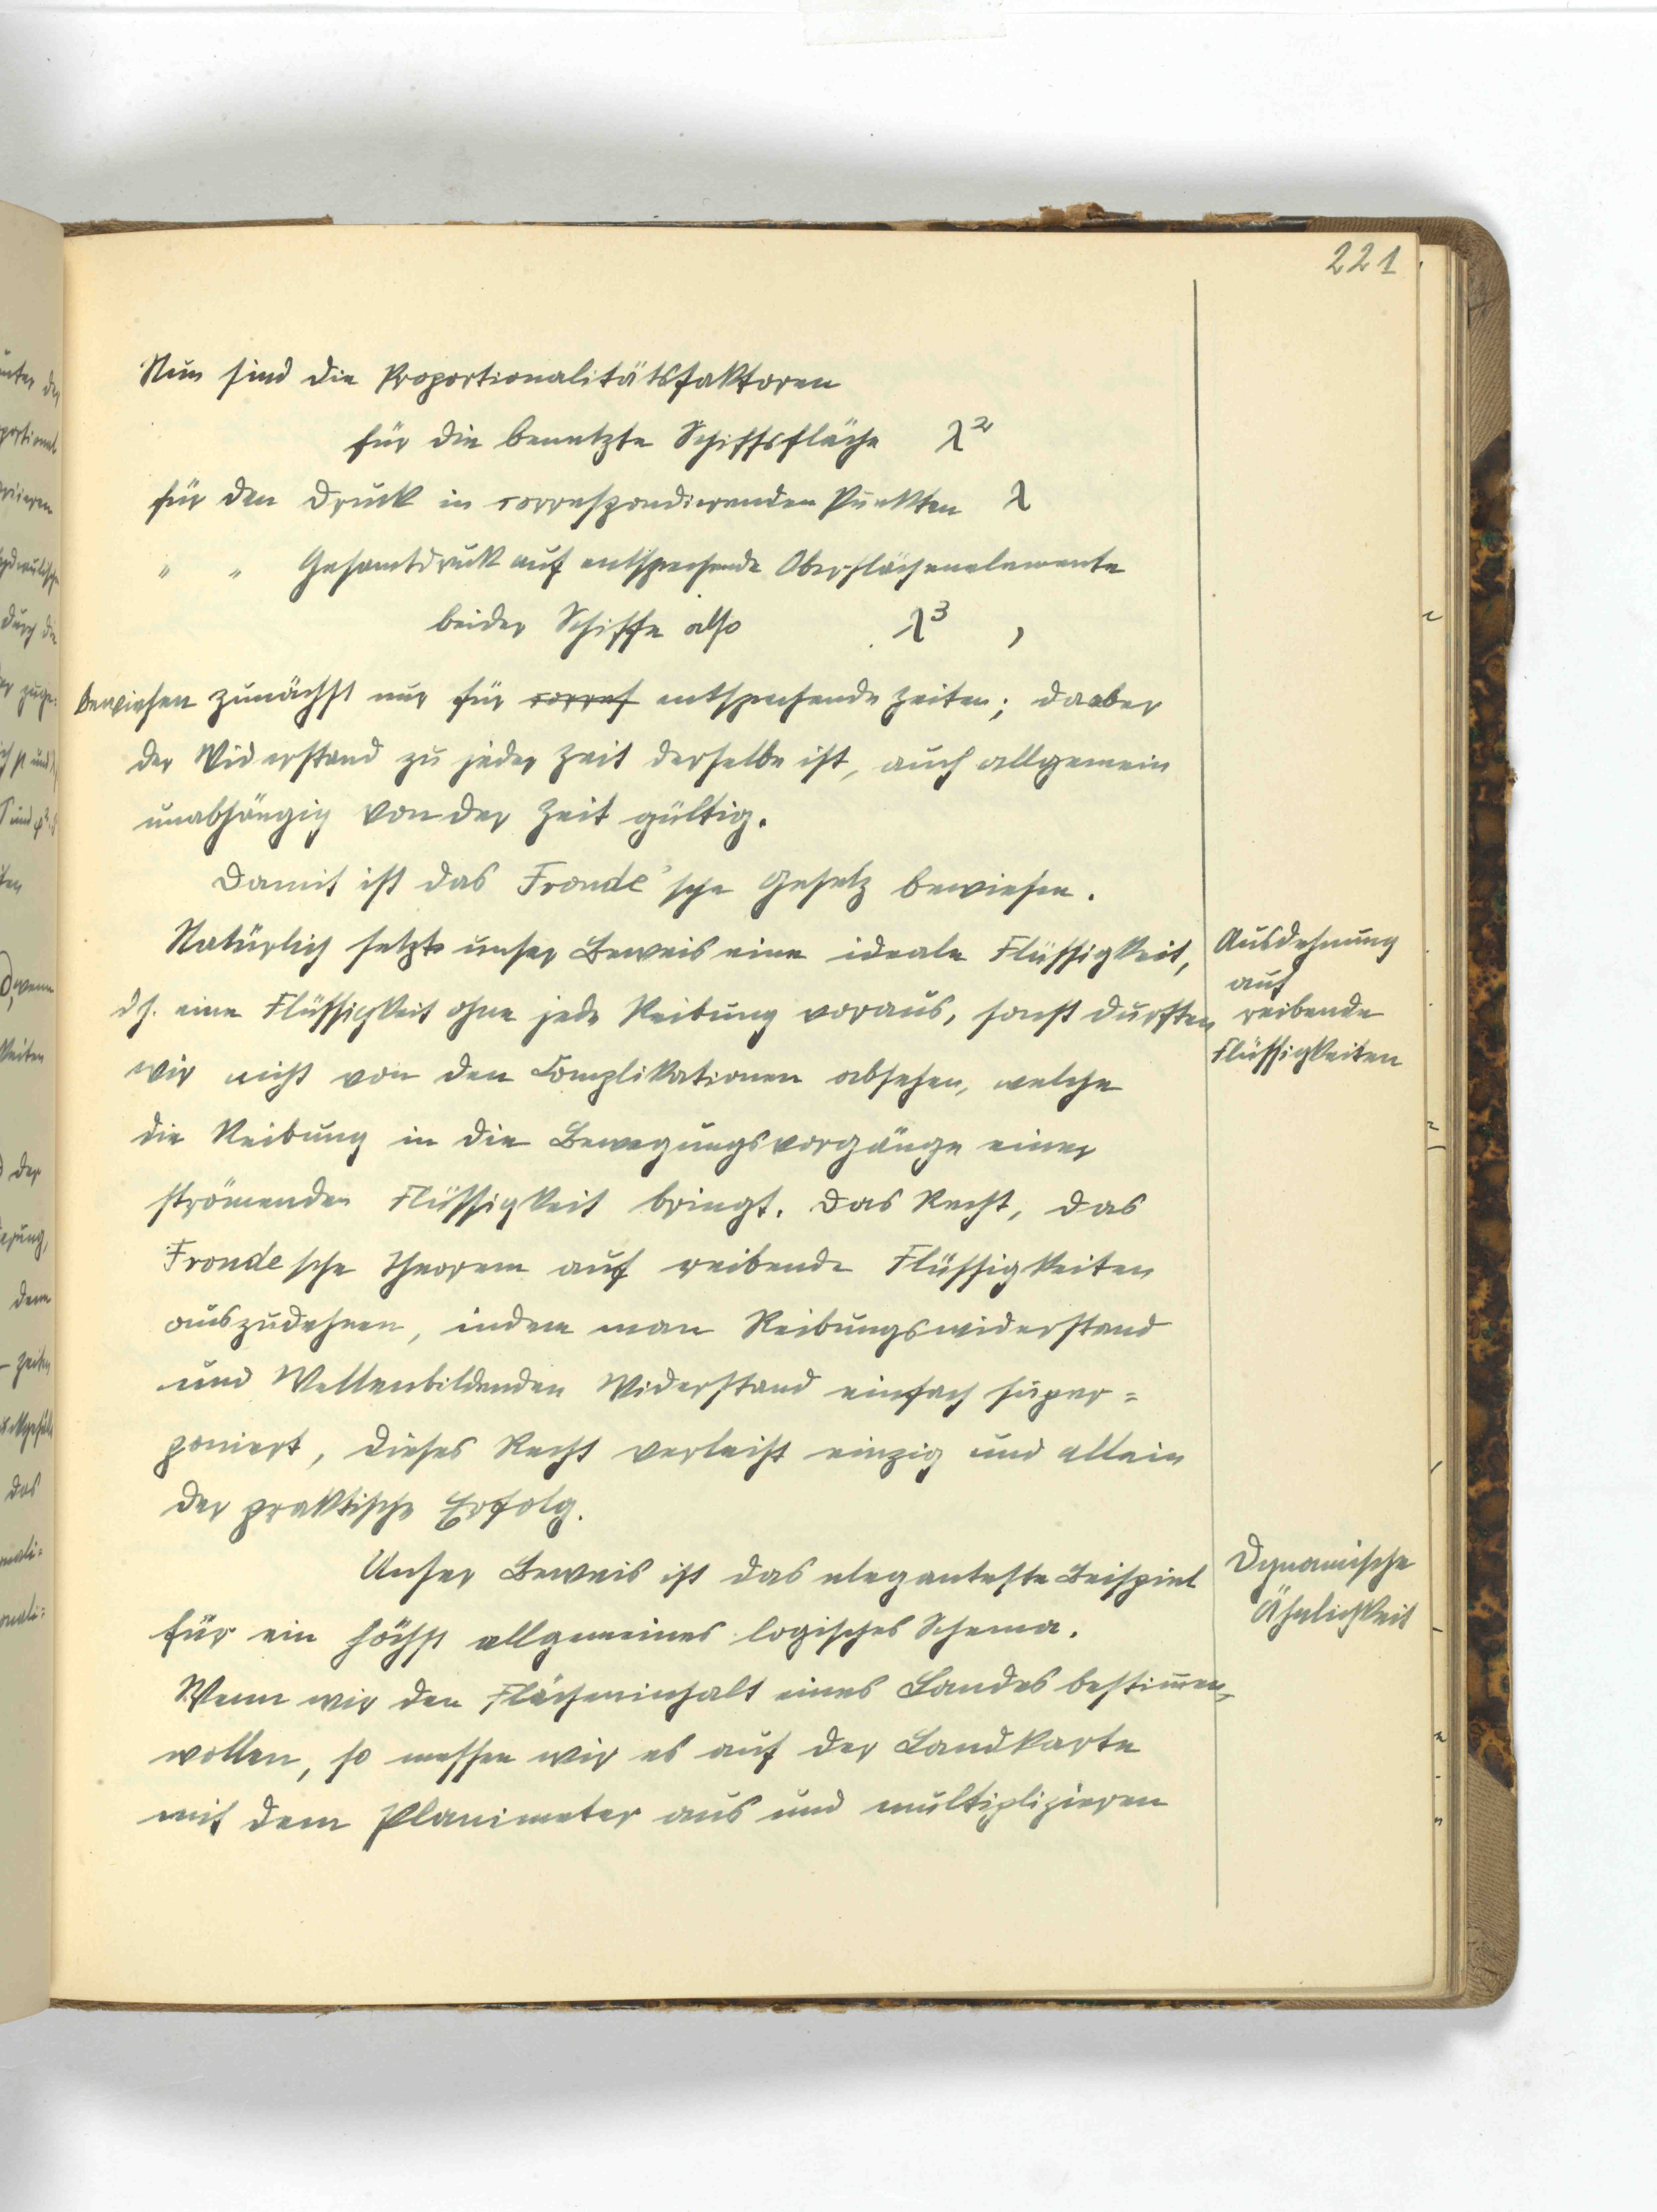 221
Nun sind die Proportionalitätsfaktoren
für die benetzte Schiffsfläche λ²
für den Druck in correspondierenden Punkten λ
" " Gesamtdruck auf entsprechende Oberflächenelemente
beider Schiffe also λ³ ,
bewiesen zunächst nur für corres entsprechende Zeiten; da aber
der Widerstand zu jeder Zeit derselbe ist, auch allgemein
unabhängig von der Zeit gültig.
Damit ist das Froude'sche Gesetz bewiesen.
Natürlich setzt unser Beweis eine ideale Flüssigkeit,
dh. eine Flüssigkeit ohne jede Reibung voraus, sonst durften
wir nicht von den Complikationen absehen, welche
die Reibung in die Bewegungsvorgänge einer
strömenden Flüssigkeit bringt. Das Recht, das
Froudesche Theorem auf reibende Flüssigkeiten
auszudehnen, indem man Reibungswiderstand
und Wellenbildenden Widerstand einfach super=
poniert, dieses Recht verleiht einzig und allein
der praktische Erfolg.
Unser Beweis ist das eleganteste Beispiel
für ein höchst allgemeines logisches Schema.
Wenn wir den Flächeninhalt eines Landes bestim̄en,
wollen, so messen wir es auf der Landkarte
mit dem Planimeter aus und multiplizieren
Ausdehnung
auf
reibende
Flüssigkeiten
Dynamische
Ähnlichkeit